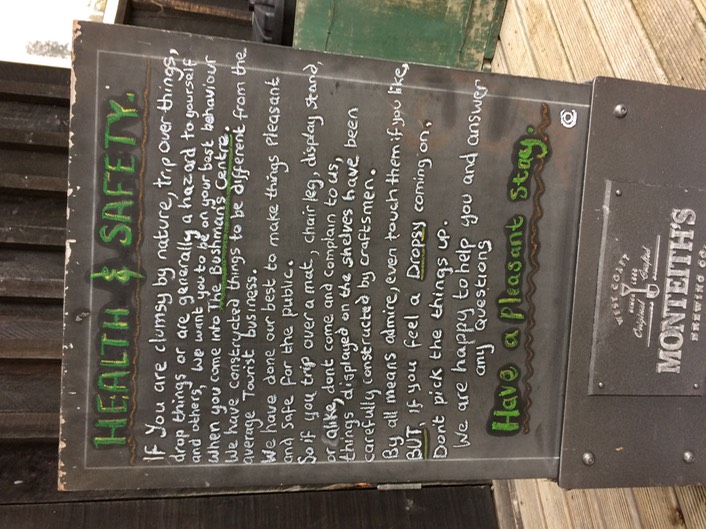 HEALTH & SAFETY.
If You are clumsy by nature, trip over things,
drop things or are generally a hazard to yourself
and others, We want you to be on your best behaviour
when you come into The Bushmans Centre.
We have constructed things to be different from the
average Tourist business.
We have done our best to make things Pleasant
and Safe for the public.
So if you trip over a mat, chair leg, display stand,
or alike, dont come and Complain to us,
things displayed on the shelves have been
carefully constructed by craftsmen.
By all means admire, even touch them if you like,
BUT, if you feel a Dropsy coming on,
Dont pick the things up.
We are happy to help you and answer
any Questions
Have a Pleasant Stay.
WEST COAST
Original Crafted
MONTEITH'S
BREWING CO.